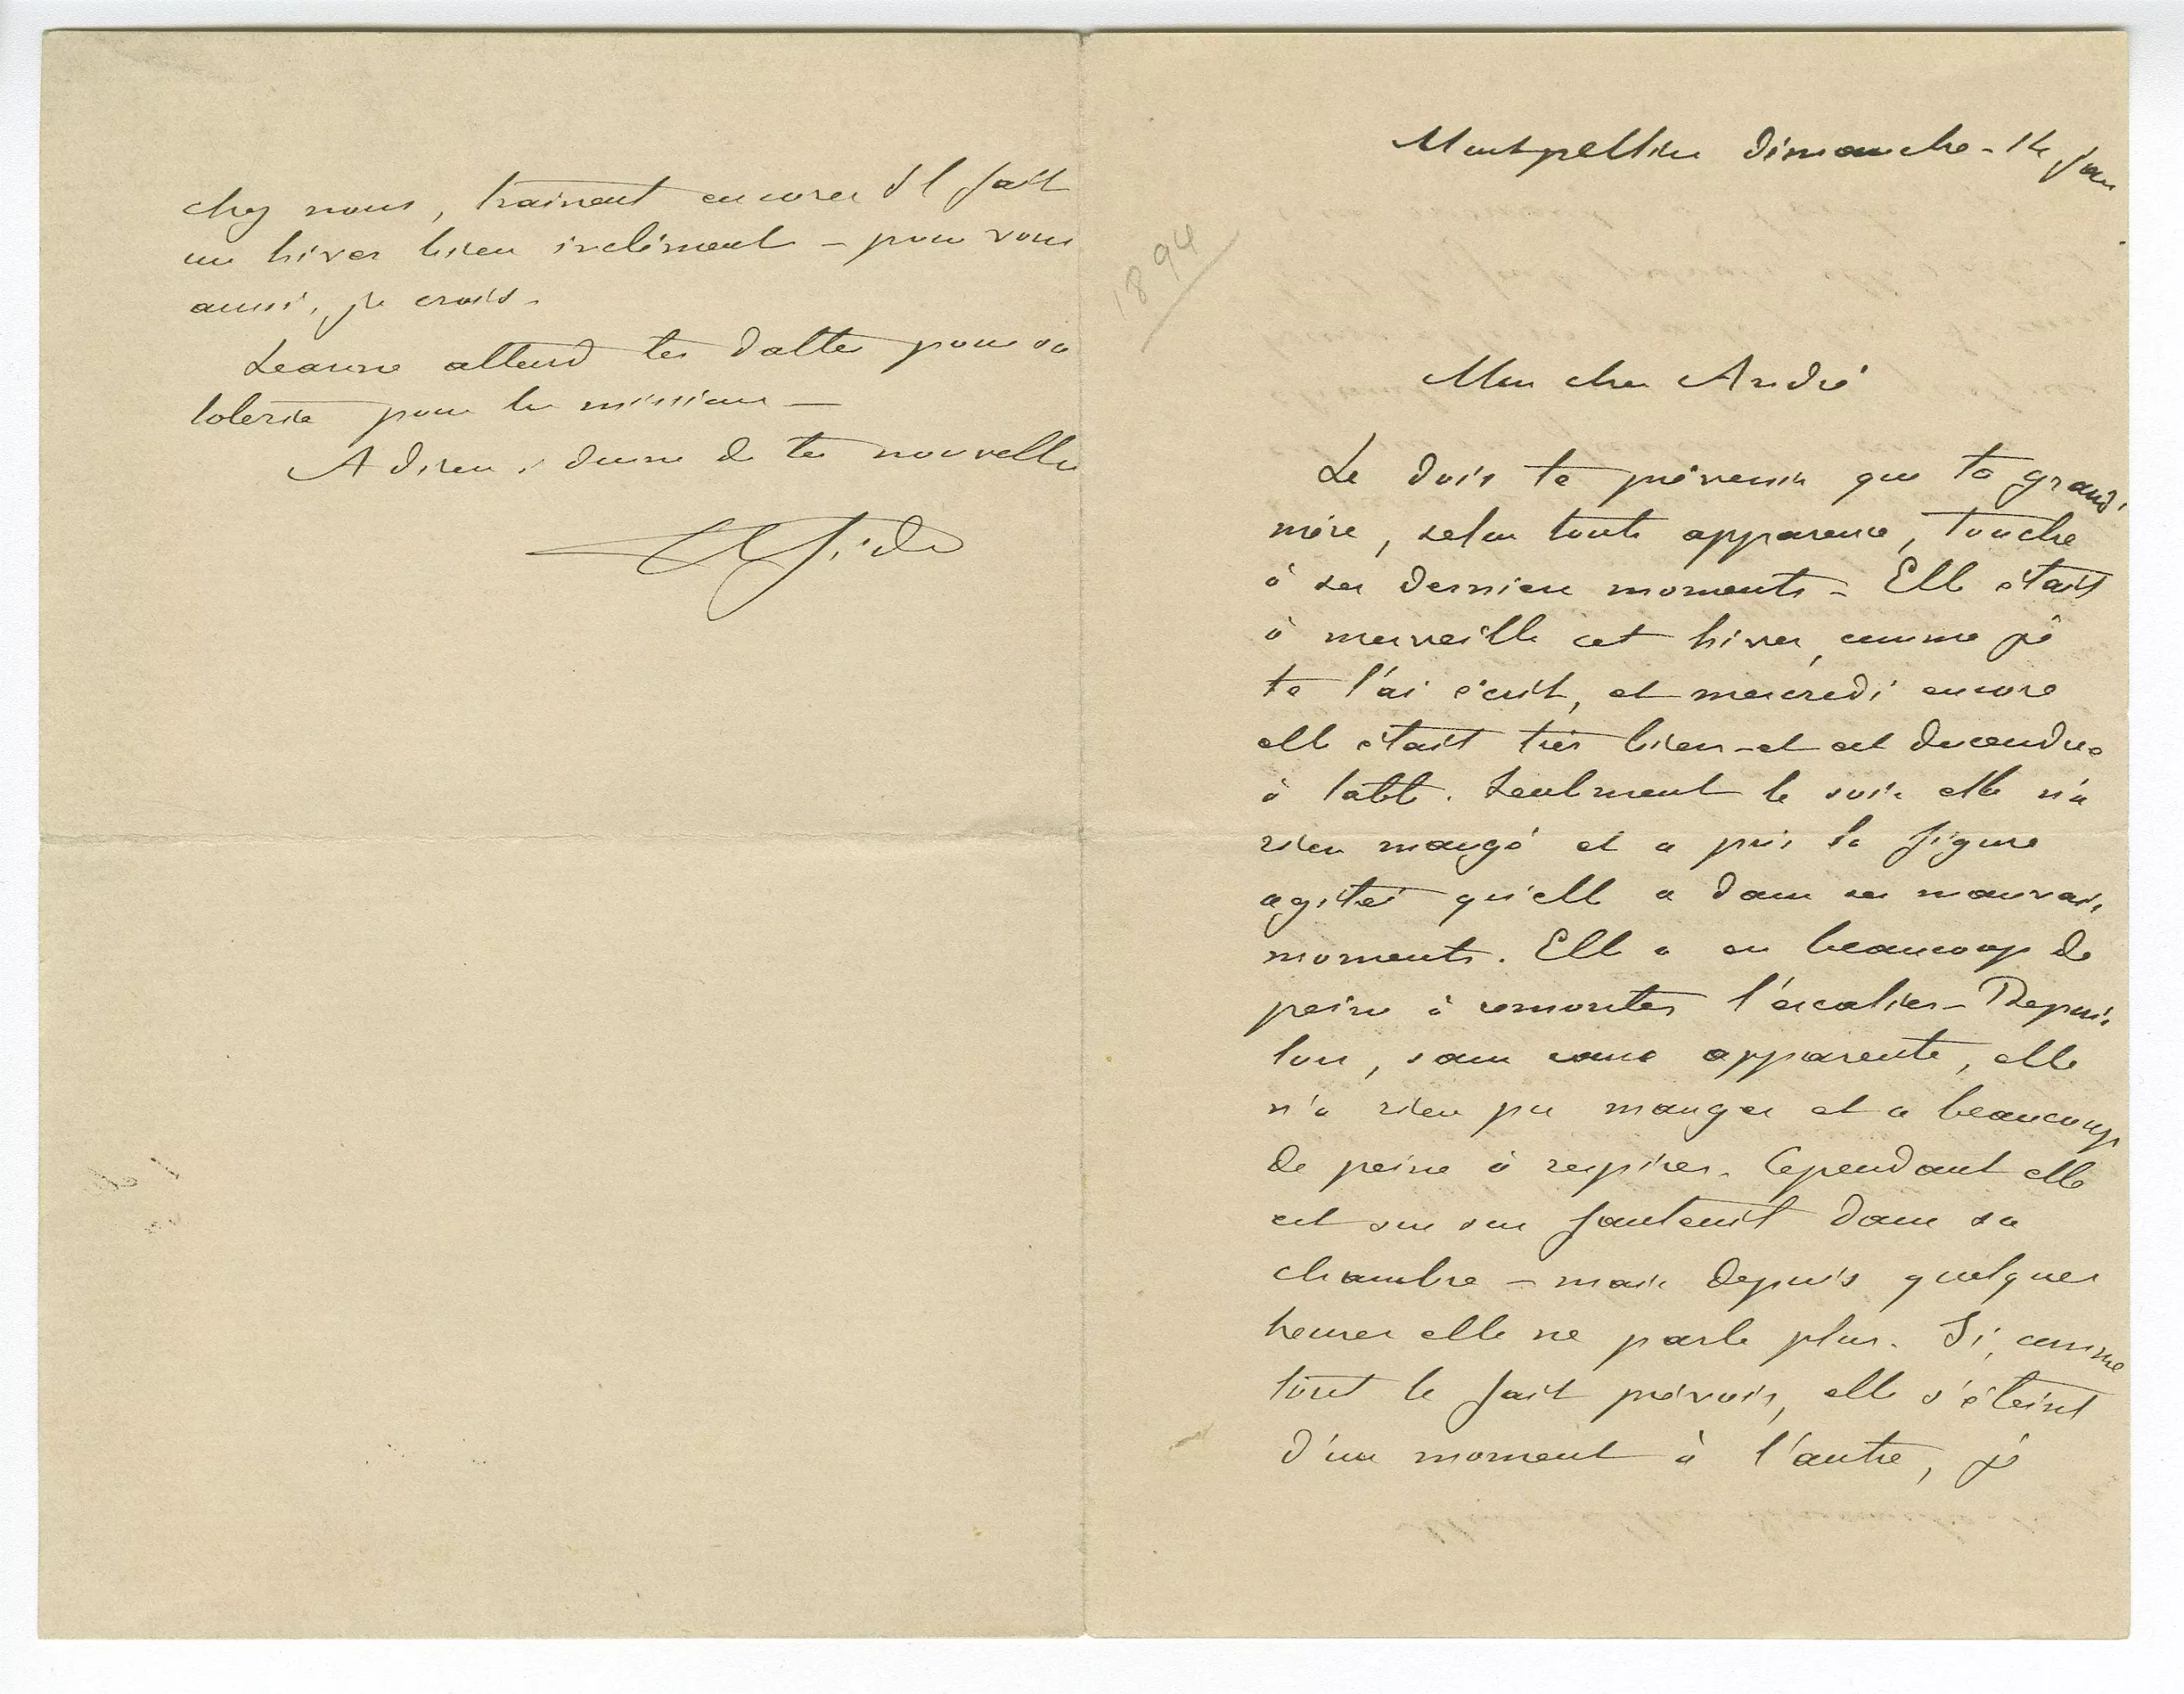 Montpellier Dimanche - 14 Jan
1894
Mon cher André
Je dois te prévenir que ta grand'
mère, selon toute apparence, touche
à ses derniers moments - Elle était
à merveille cet hiver, comme je
te l'ai écrit, et mercredi encore
elle était très bien - et est descendue
à table. Seulement le soir elle n'a
rien mangé et a pris la figure
agitée qu'elle a dans ses mauvais
moments. Elle a eu beaucoup de
peine à remonter l'escalier - Depuis
lors, sans cause apparente, elle
n'a rien pu manger et a beaucoup
de peine à respirer. Cependant elle
est sur son fauteuil dans sa
chambre - mais depuis quelques
heures elle ne parle plus. Si, comme
tout le fait prévoir, elle s'éteint
d'un moment à l'autre, je
chez nous, trainent encore. Il fait
un hiver bien inclément - pour vous
aussi, je crois -
Jeanne attend tes dattes pour sa
loterie pour les missions -
Adieu, donne de tes nouvelles
Ch Gide